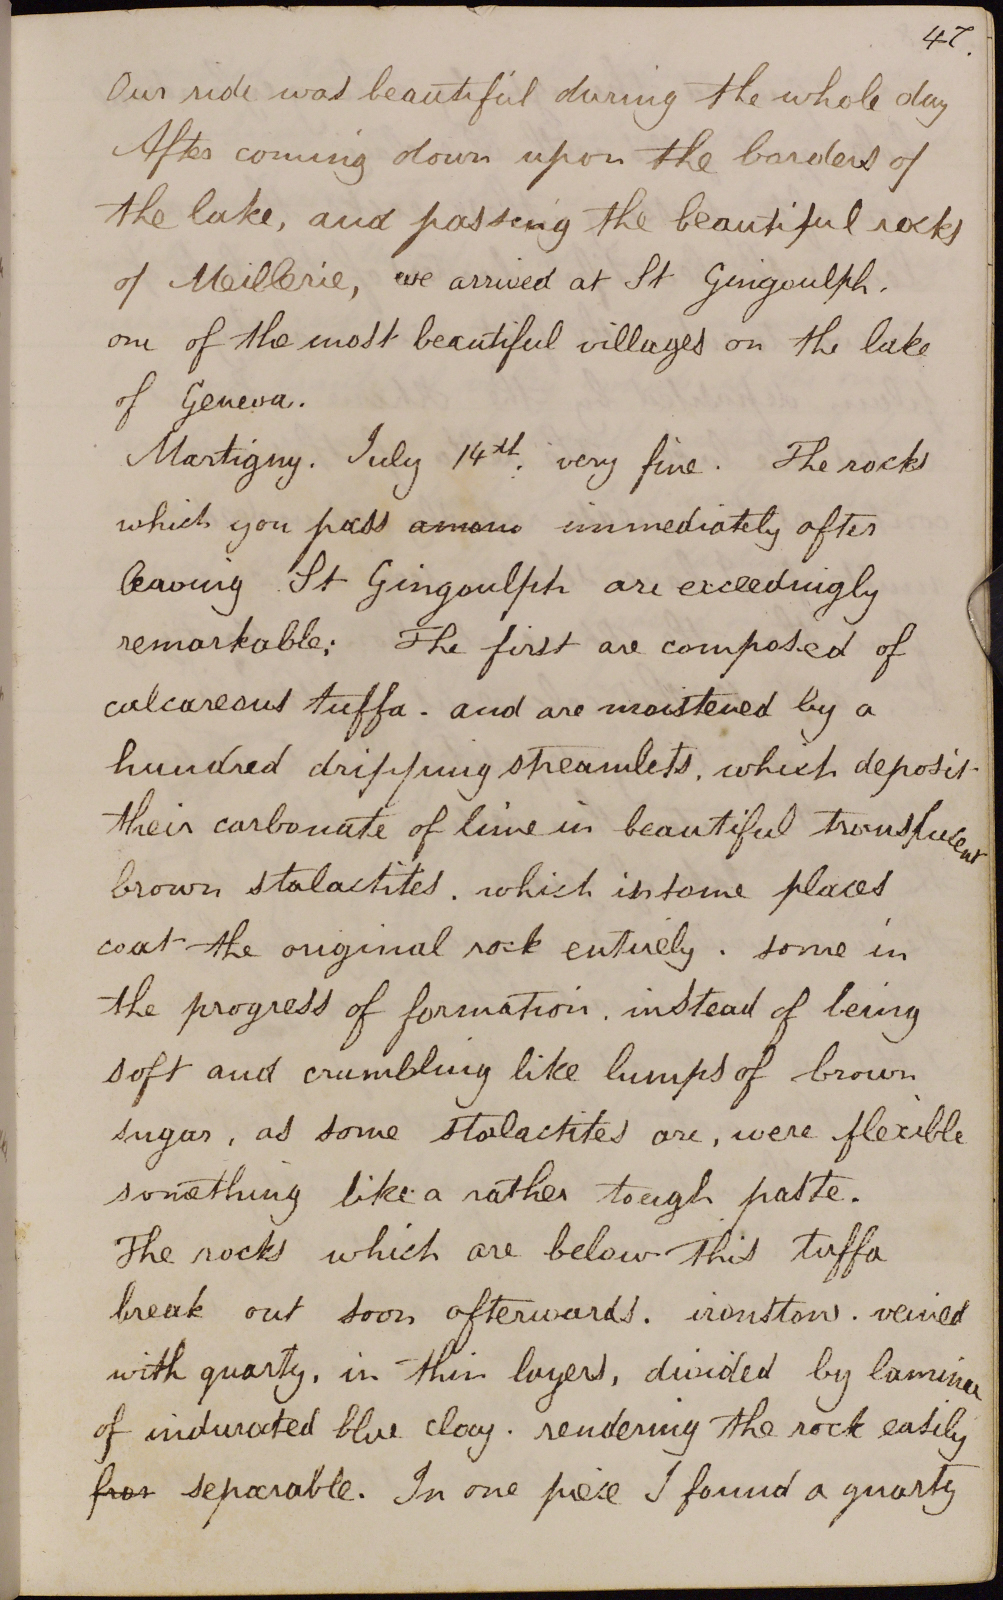 47.
Our ride was beautiful during the whole day
After coming down upon the borders of
the lake, and passing the beautiful rocks
of Meillerie, we arrived at St Gingoulph.
one of the most beautiful villages on the lake
of Geneva.
Martigny. July 14th. very fine. The rocks
which you pass among immediately after
leaving St Gingoulph are exceedingly
remarkable; The first are composed of
calcareous tuffa. and are moistened by a
hundred dripping streamlets, which deposit
their carbonate of lime in beautiful translucent
brown stalactites. which in some places
coat the original rock entirely. some in
the progress of formation. instead of being
soft and crumbling like lumps of brown
sugar, as some stalactites are, were flexible
something like a rather tough paste.
The rocks which are below this tuffa
break out soon afterwards. ironstone. veined
with quartz, in thin layers, divided by laminae
of indurated blue clay. rendering the rock easily
separable. In one piece I found a quartz